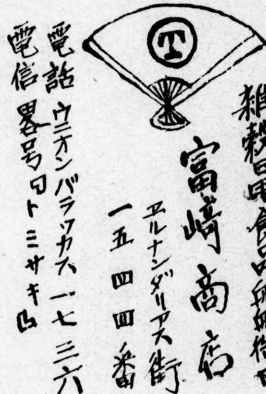 T
雑穀日用食品
富﨑商店
エルナンダリアス街
一五四四番
電話ウニオンバラッカス一七三六
電信畧号「トミサキ」